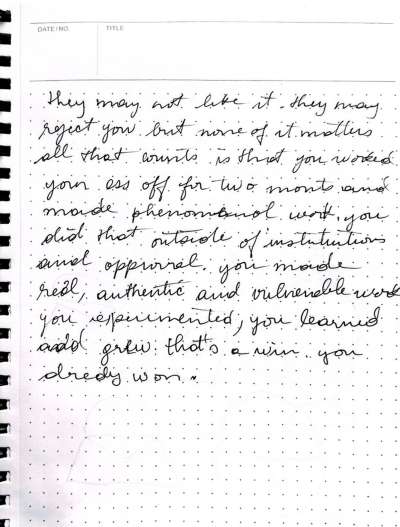 DATE / NO.
TITLE
they may not like it. they may
reject you but none of it matters
all that counts is that you worked
your ass off for two monts and
made phenomenal work. you
did that outside of institutions
and approval. you made
real, authentic and vulnerable work
you experimented, you learned
add grew. that's a win. you
already won.